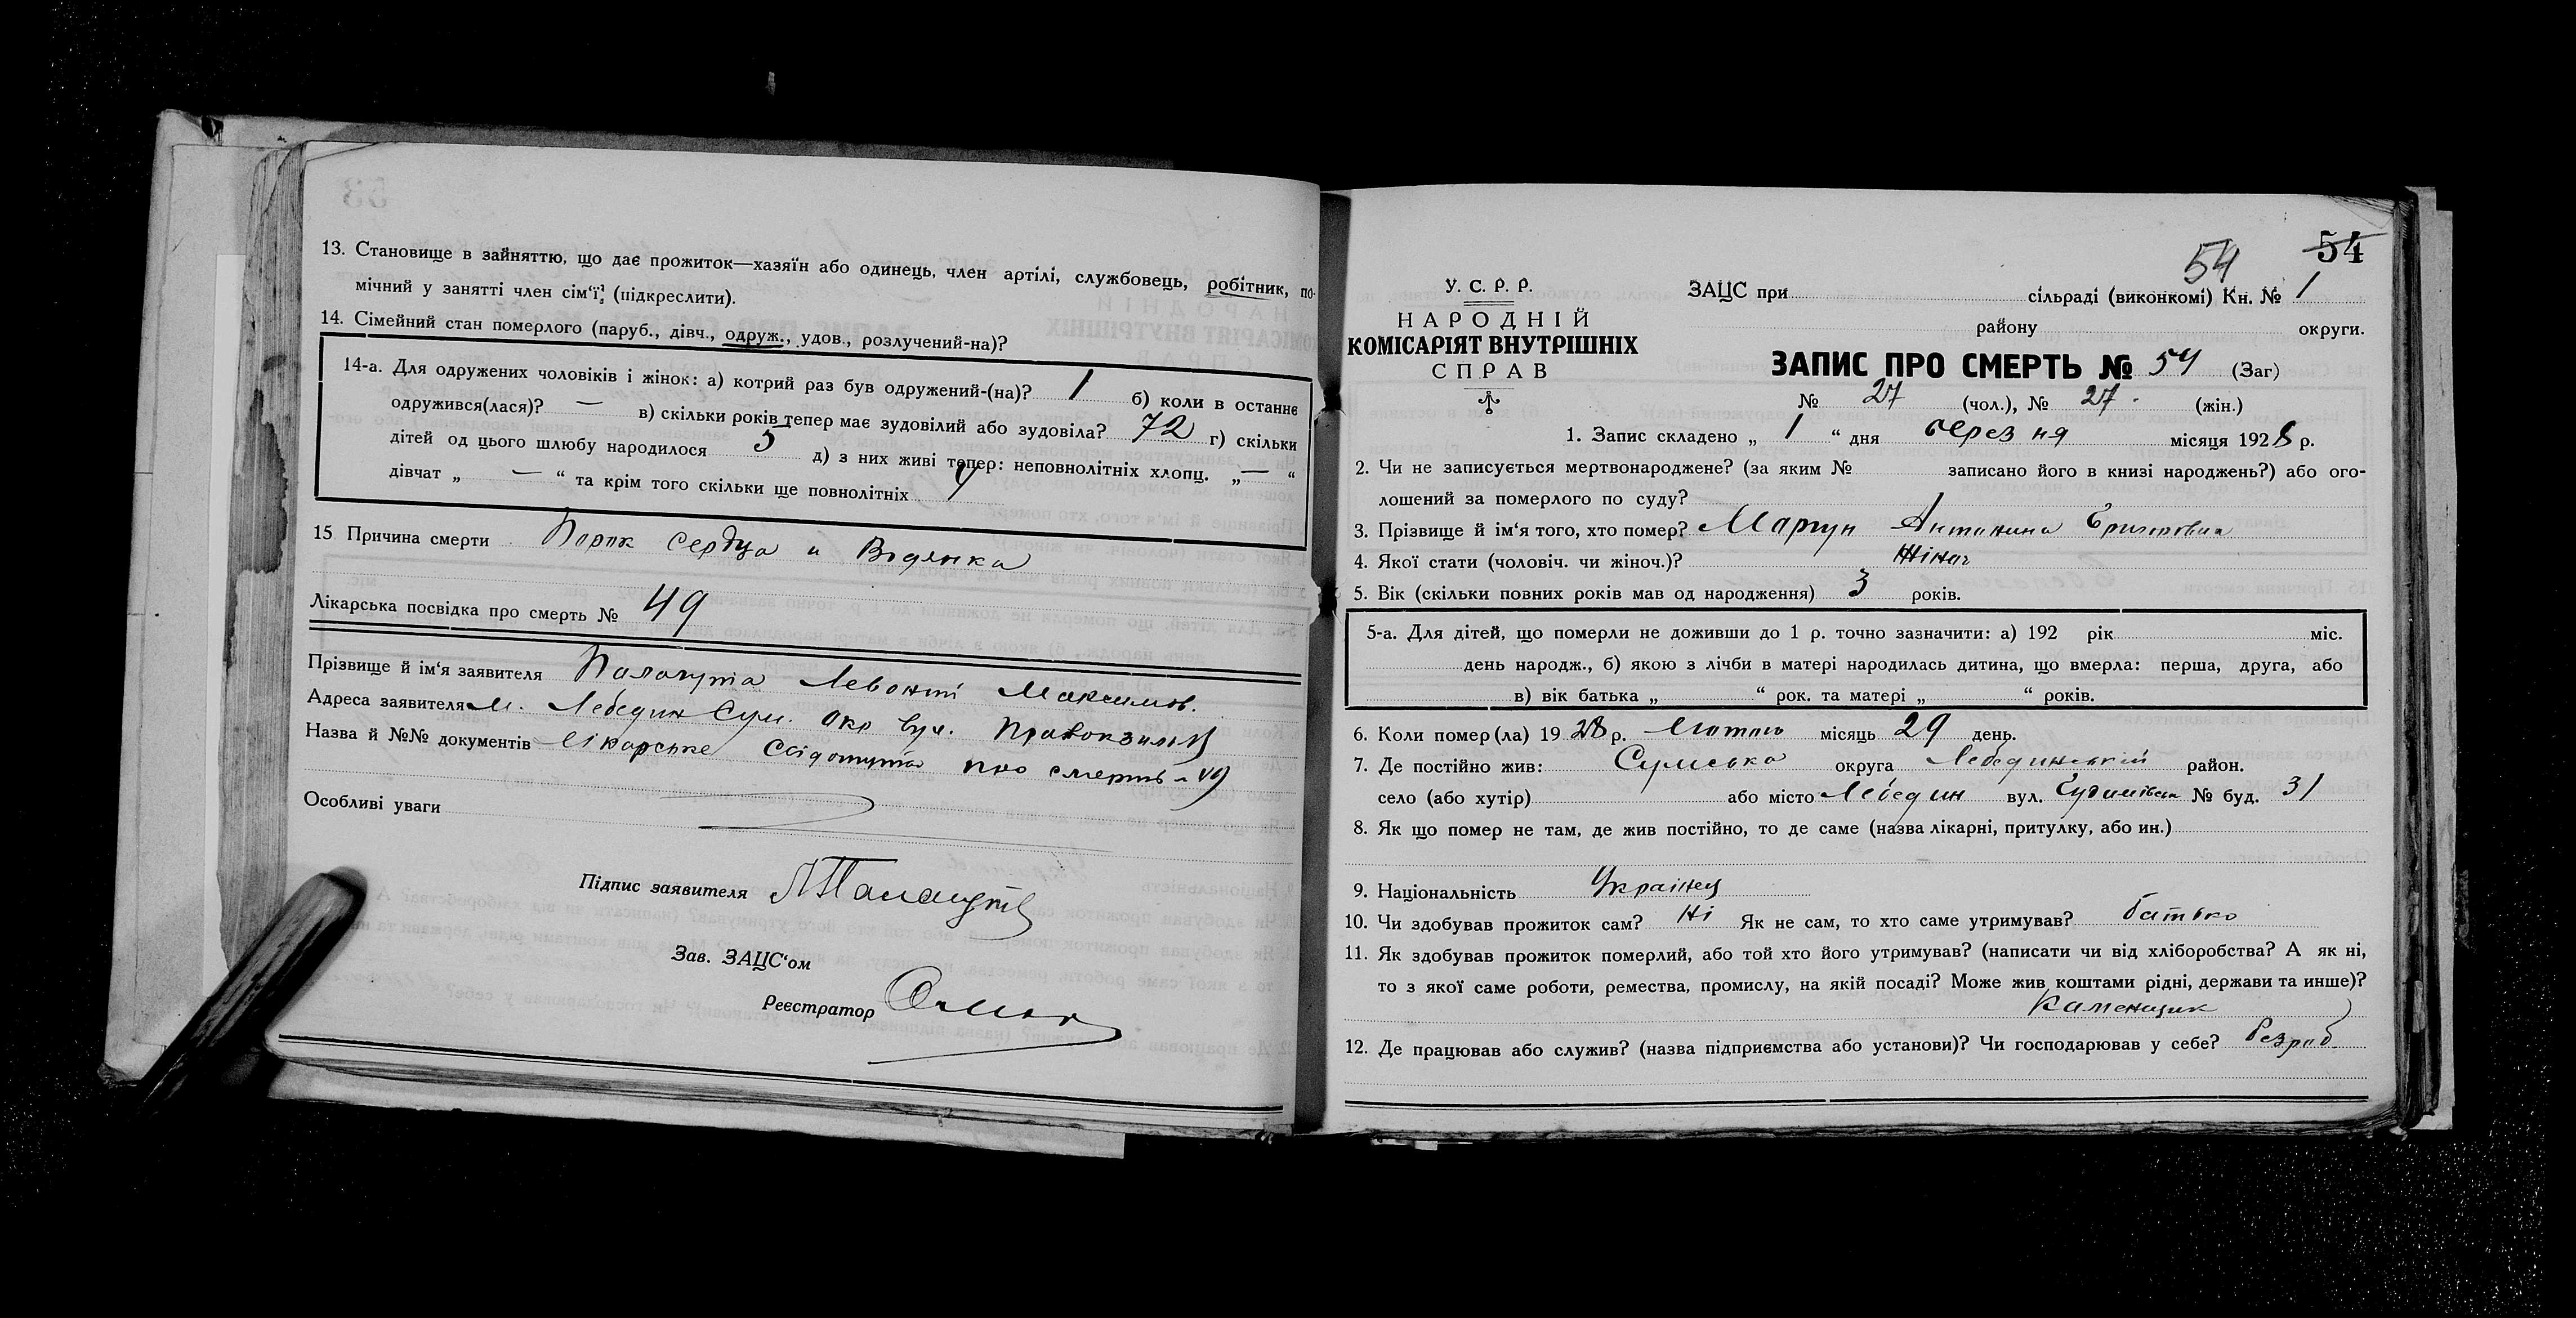 13. Становище в зайняттю, що дає прожиток—хазяїн або одинець, член артілі, службовець, робітник, по-
мічний у занятті член сім'ї, (підкреслити).
14. Сімейний стан померлого (паруб., дівч., одруж., удов., розлучений-на)?
14-а. Для одружених чоловіків і жінок: а) котрий раз був одружений-(на)? 1 б) коли в останнє
одружився(лася)? — в) скільки років тепер має зудовілий або зудовіла? 72 г) скільки
дітей од цього шлюбу народилося 5 д) з них живі тепер: неповнолітніх хлопц. „ — “
дівчат „ — “ та крім того скільки ще повнолітніх 4
15 Причина смерти Порок Сердца и Водянка
Лікарська посвідка про смерть № 49
Прізвище й ім'я заявителя Палагута Левонтій Максимов.
Адреса заявителя м. Лебедин Сум. Окр вул.
Назва й №№ документів Лікарське про смерть 49
Особливі уваги
Підпис заявителя
Зав. ЗАЦС'ом
Реєстратор
54
54
У. С. Р. Р.
НАРОДНІЙ
КОМІСАРІЯТ ВНУТРІШНІХ
СПРАВ
ЗАЦС при сільраді (виконкомі) Кн. № 1
району округи.
ЗАПИС ПРО СМЕРТЬ № 54 (Заг)
№ 27 (чол.), № 27 (жін.)
1. Запис складено „ 1 “ дня березня місяця 1928 р.
2. Чи не записується мертвонароджене? (за яким № записано його в книзі народжень?) або ого-
лошений за померлого по суду?
3. Прізвище й ім'я того, хто помер? Антонина Григоровна
4. Якої стати (чоловіч. чи жіноч.)? Жіноч
5. Вік (скільки повних років мав од народження) 3 років.
5-а. Для дітей, що померли не доживши до 1 р. точно зазначити: а) 192 рік міс.
день народж., б) якою з лічби в матері народилась дитина, що вмерла: перша, друга, або
в) вік батька „ “ рок. та матері „ “ років.
6. Коли помер(ла) 1928 р. Лютого місяць 29 день.
7. Де постійно жив: Сумська округа Лебединській район.
село (або хутір) або місто Лебедин вул. № буд. 31
8. Як що помер не там, де жив постійно, то де саме (назва лікарні, притулку, або ин.)
9. Національність Українец
10. Чи здобував прожиток сам? Ні Як не сам, то хто саме утримував? батько
11. Як здобував прожиток померлий, або той хто його утримував? (написати чи від хліборобства? А як ні,
то з якої саме роботи, ремества, промислу, на якій посаді? Може жив коштами рідні, держави та инше)?
Каменщик
12. Де працював або служив? (назва підприємства або установи)? Чи господарював у себе? безроб.